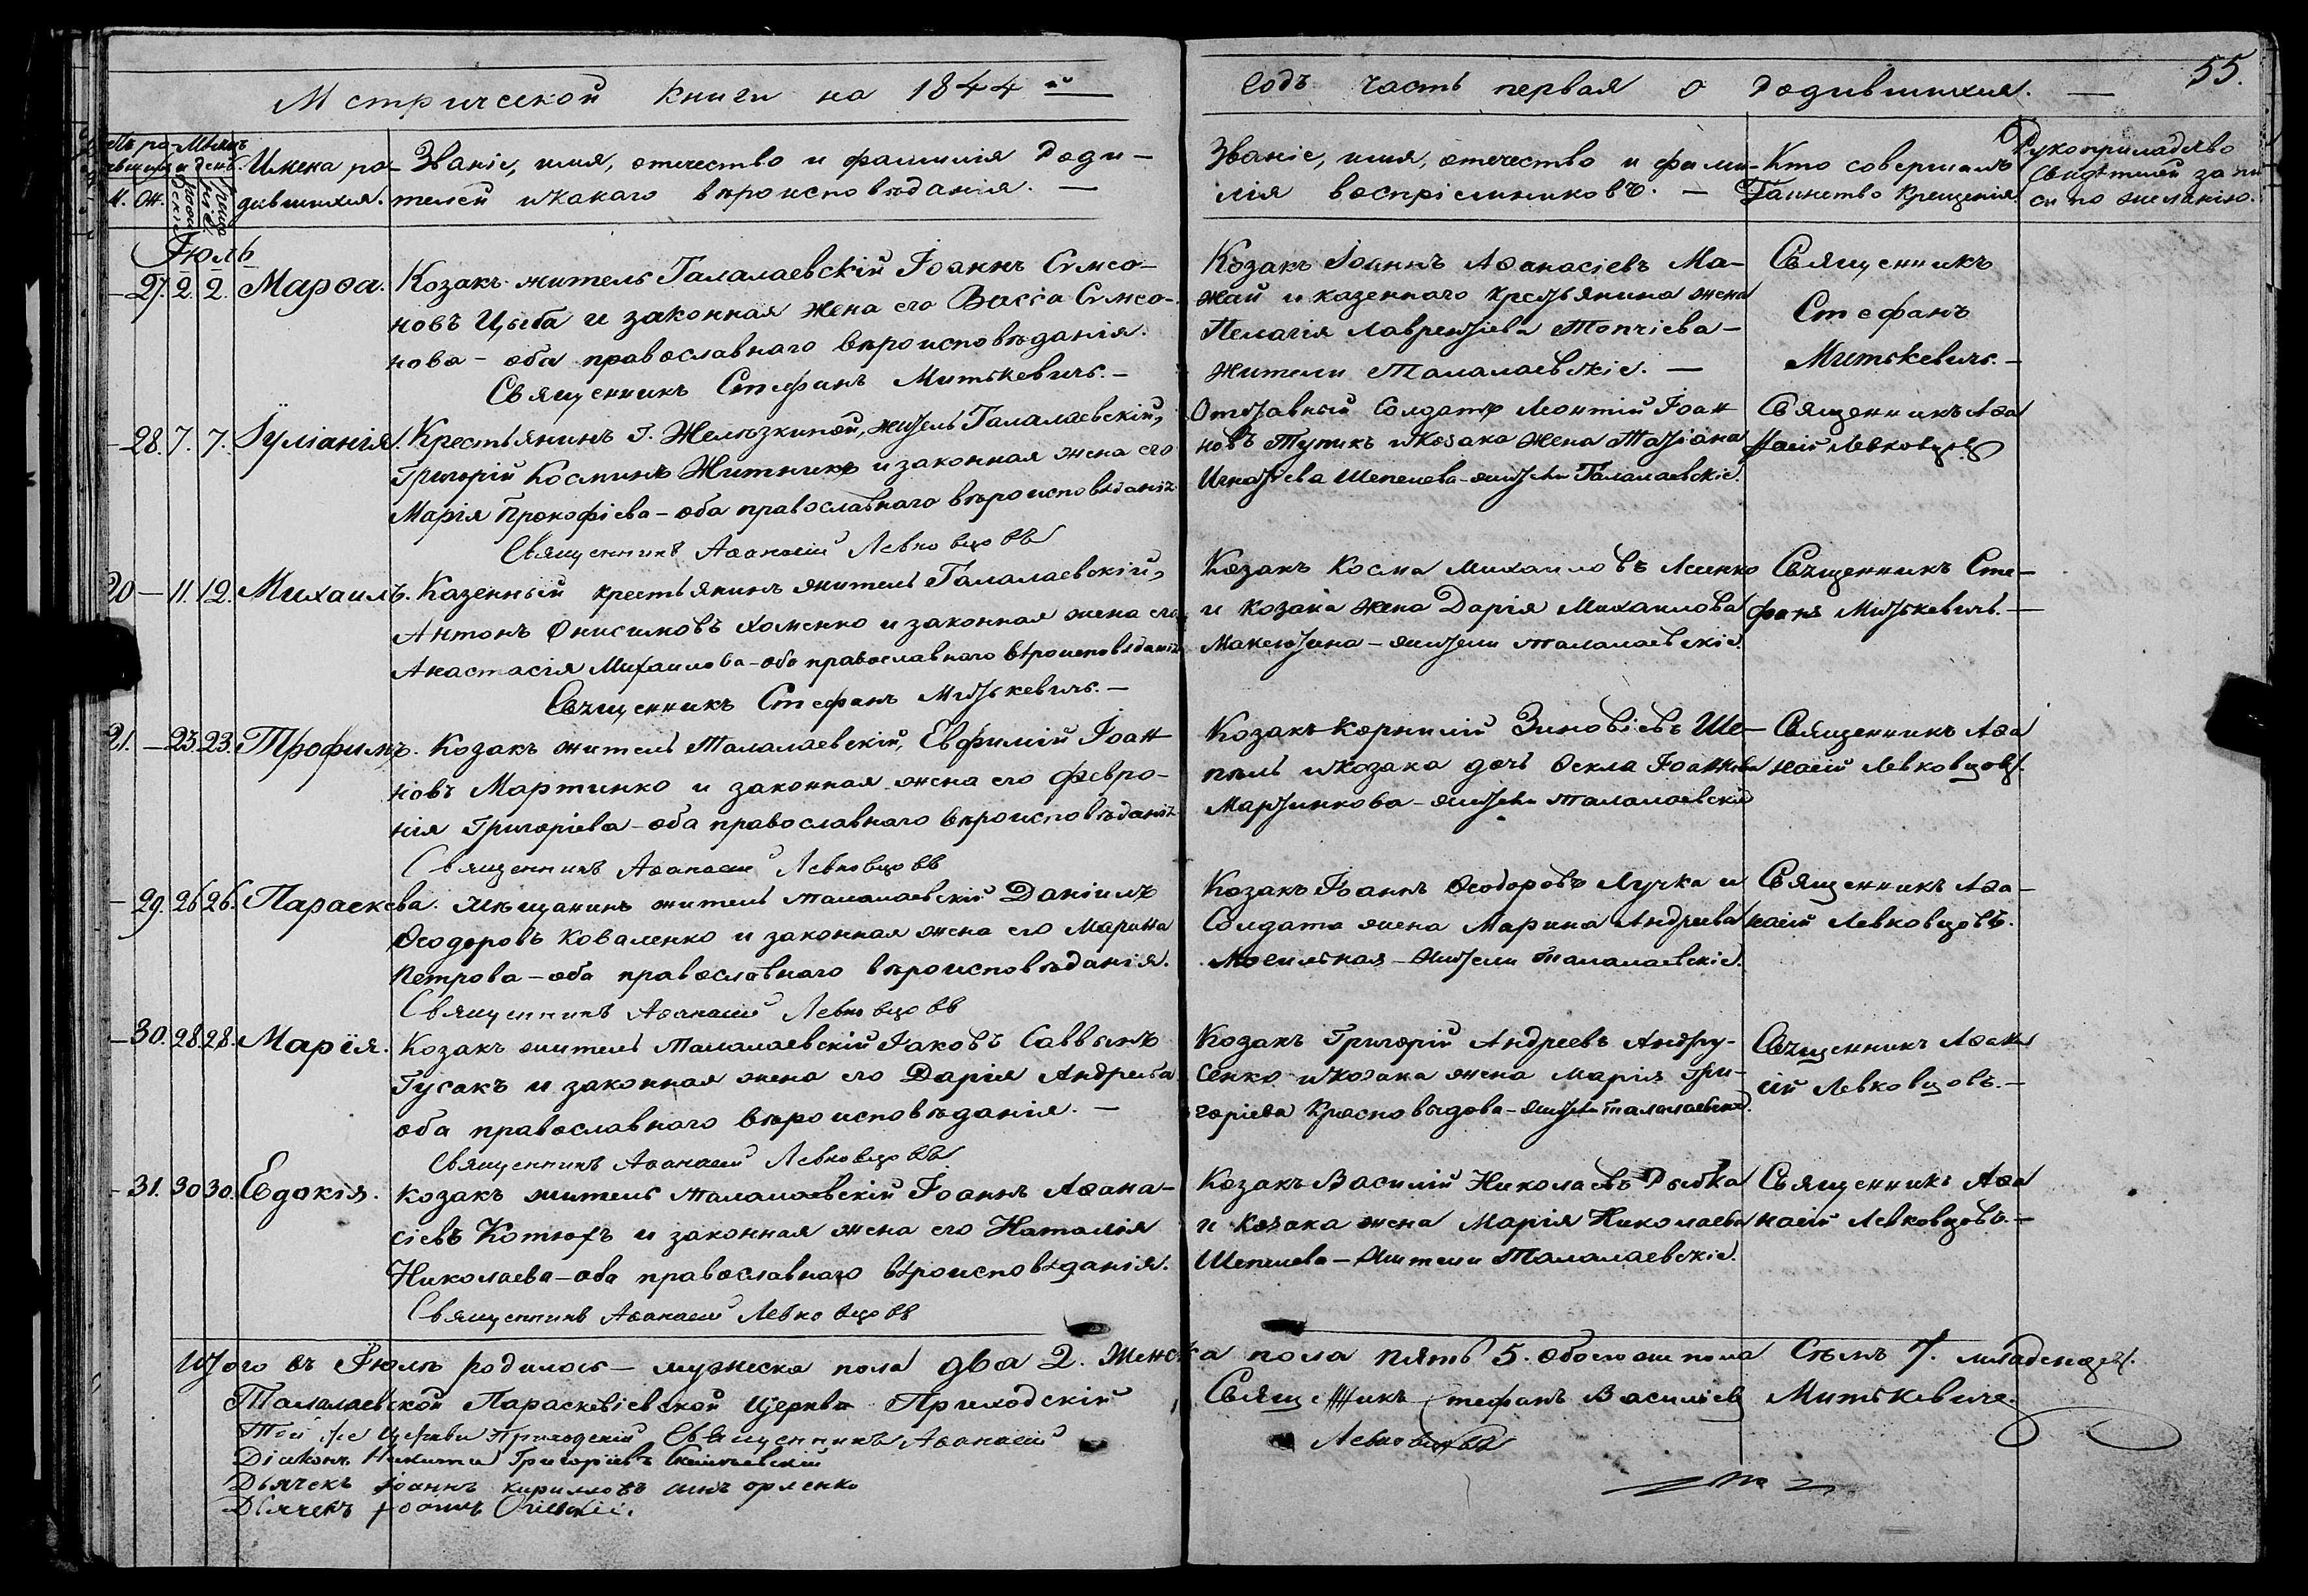 Метрической книги на 1844 й
годъ часть первая о родившихся. —
55.
Мѣсяцъ
и день.
М. Ж.
Имена ро-
дившихся.
Званіе, имя, отечество и фамилія роди-
телей и какого вѣроисповѣданія. —
Званіе, имя, отечество и фами-
лія воспріемниковъ. —
Кто совершалъ
Таинство крещенія
Рукоприкладство
свидѣтелей записи
по желанію.
Іюль
— 27. 2. 2. Марѳа.
Козакъ житель Талалаевскій Іоаннъ Сѵмео-
новъ Цыба и законная жена его Васса Сѵмео-
нова — оба православнаго вѣроисповѣданія.
Священникъ Стефанъ Митькевичъ. —
Козакъ Іоаннъ Аѳанасіевъ Ма-
жай и казеннаго крестьянина жена
Пелагія Лаврентіева Топчіева —
жители Талалаевскіе. —
Священникъ
Стефанъ
Митькевичъ. —
— 28. 7. 7. Іуліанія.
Крестьянинъ Г. Желѣзкиной, житель Талалаевскій,
Григорій Косминъ Житникъ и законная жена его
Марія Прокофіева — оба православнаго вѣроисповѣданія
Священникъ Аѳанасій Левковцовъ
Отставный Солдатъ Леонтій Іоан
новъ Тупикъ и козака жена Татіана
Игнатіева Шепелева — жители Талалаевскіе.
Священникъ Аѳа
насій Левковцовъ
20 — 11. 12. Михаилъ.
Казенный крестьянинъ житель Талалаевскій,
Антонъ Онисимовъ Хоменко и законная жена его
Анастасія Михаилова — оба православнаго вѣроисповѣданія
Священникъ Стефанъ Митькевичъ. —
Козакъ Косма Михаиловъ Лсенко
и козака жена Дарія Михаилова
— жители Талалаевскіе.
Священникъ Сте-
фанъ Митькевичъ. —
21. — 23. 23. Трофимъ.
Козакъ житель Талалаевскій, Евфимій Іоан
новъ Мартинко и законная жена его Февро-
нія Григоріева — оба православнаго вѣроисповѣданія
Священникъ Аѳанасій Левковцовъ
Козакъ Корнилій Зиновіевъ Ше-
пель и козака дочь Ѳекла Іоаннова
Мартинкова — жители Талалаевскіе
Священникъ Аѳа
насій Левковцовъ.
— 29. 26 26. Параскева.
Мѣщанинъ житель Талалаевскій Даніилъ
Ѳеодоровъ Коваленко и законная жена его Марина
Петрова — оба православнаго вѣроисповѣданія.
Священникъ Аѳанасій Левковцовъ
Козакъ Іоаннъ Ѳеодоровъ Лучка и
Солдата жена Марина Андреева
Могильная — жители Талалаевскіе.
Священникъ Аѳа-
насій Левковцовъ.
— 30. 28 28. Марія.
Козакъ житель Талалаевскій Іаковъ Саввынъ
Гусакъ и законная жена его Дарія Андреева
оба православнаго вѣроисповѣданія. —
Священникъ Аѳанасій Левковцовъ
Козакъ Григорій Андреевъ Андру-
сенко и козака жена Марія Гри-
горіева Красновыдова — жители Талалаевскіе.
Священникъ Аѳана
сій Левковцовъ. —
— 31. 30 30. Евдокія.
Козакъ житель Талалаевскій Іоаннъ Аѳана-
сіевъ Котюхъ и законная жена его Наталія
Николаева — оба православнаго вѣроисповѣданія.
Священникъ Аѳанасій Левковцовъ
Козакъ Василій Николаевъ Рыбка
и козака жена Марія Николаева
Шепелева — жители Талалаевскіе.
Священникъ Аѳа
насій Левковцовъ. —
Итого въ Іюлѣ родилось — мужеска пола два 2. Женска пола пять 5. обоего пола Семь 7. младенцевъ.
Талалаевской Параскевіевской Церкви Приходскій Священникъ Стефанъ Васильевъ Митькевичъ
Той же Церкви Приходскій Священникъ Аѳанасій Левковцовъ
Діаконъ Никита Григоріевъ
Дьячекъ Іоаннъ Кирилловъ сынъ Орленко
Дьячекъ Іоаннъ